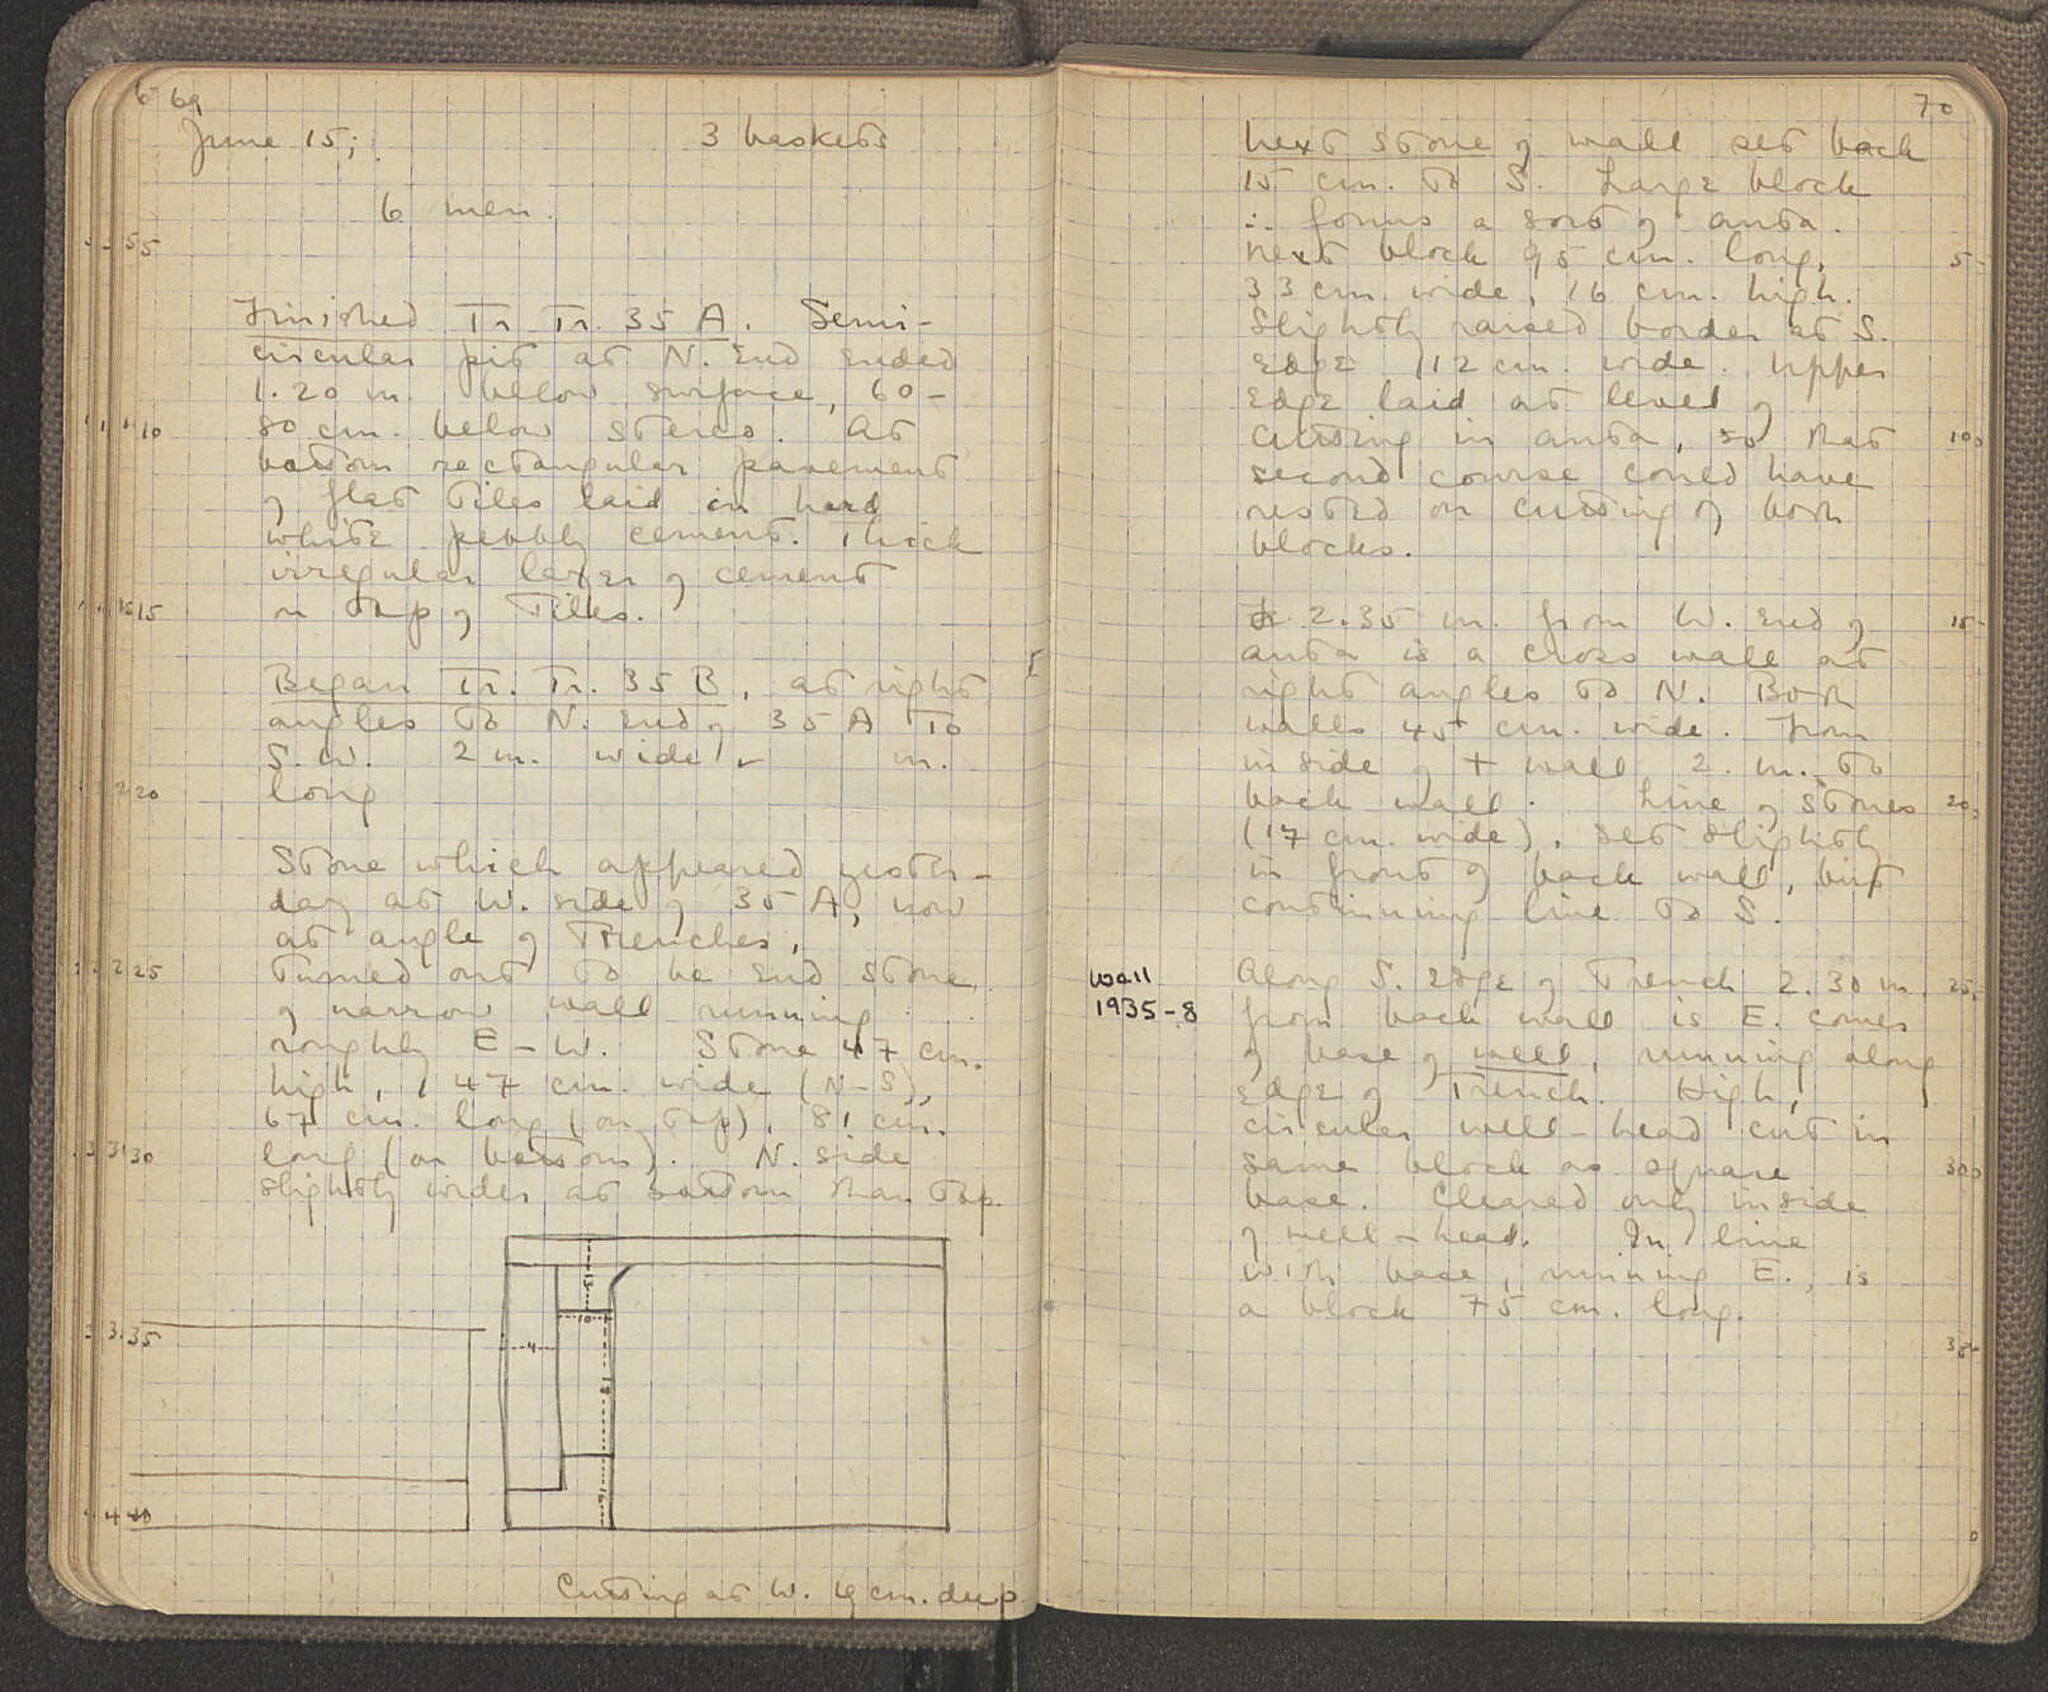 69
June 15; 3 baskets
6 men.
Finished Tr. Tr. 35 A. Semi-
circular pit at N. end ended
1.20 m. below surface, 60-
80 cm. below stereo. At
bottom rectangular pavement
of flat tiles laid in hard
white pebbly cement. Thick
irregular layer of cement
on top of tiles.
Began Tr. Tr. 35 B, at right
angles to N. end of 35 A to
S.W. 2 m. wide, m.
long
Stone which appeared yester-
day at W. side of 35 A, now
at angle of Trenches,
turned out to be end stone
of narrow wall running
roughly E-W. Stone 47 cm.
high, 47 cm. wide (N-S),
67 cm. long (on top), 81 cm.
long (on bottom). N. side
slightly wider at bottom than top.
13
10
4
18
16
Cutting at W. 19 cm. deep
70
Next stone of wall set back
15 cm. to S. Large block
∴ forms a sort of anta.
Next block 95 cm. long,
33 cm. wide, 16 cm. high.
Slightly raised border at S.
edge 12 cm. wide. Upper
edge laid at level of
cutting in anta, so that
second course could have
rested on cutting of both
blocks.
2.35 m. from W. end of
anta is a cross wall at
right angles to N. Both
walls 45 cm. wide. From
inside of + wall 2. m. to
back wall. Line of stones
(17 cm. wide), set slightly
in front of back wall, but
continuing line to S.
Well
1935-8
Along S. edge of Trench 2.30 m.
from back wall is E. corner
of base of well, running along
edge of Trench. High,
circular well-head cut in
same block as square
base. Cleared only inside
of well-head. In line
with base, running E., is
a block 75 cm. long.
5
10
15
20
25
30
35
40
5
10
15
20
25
30
35